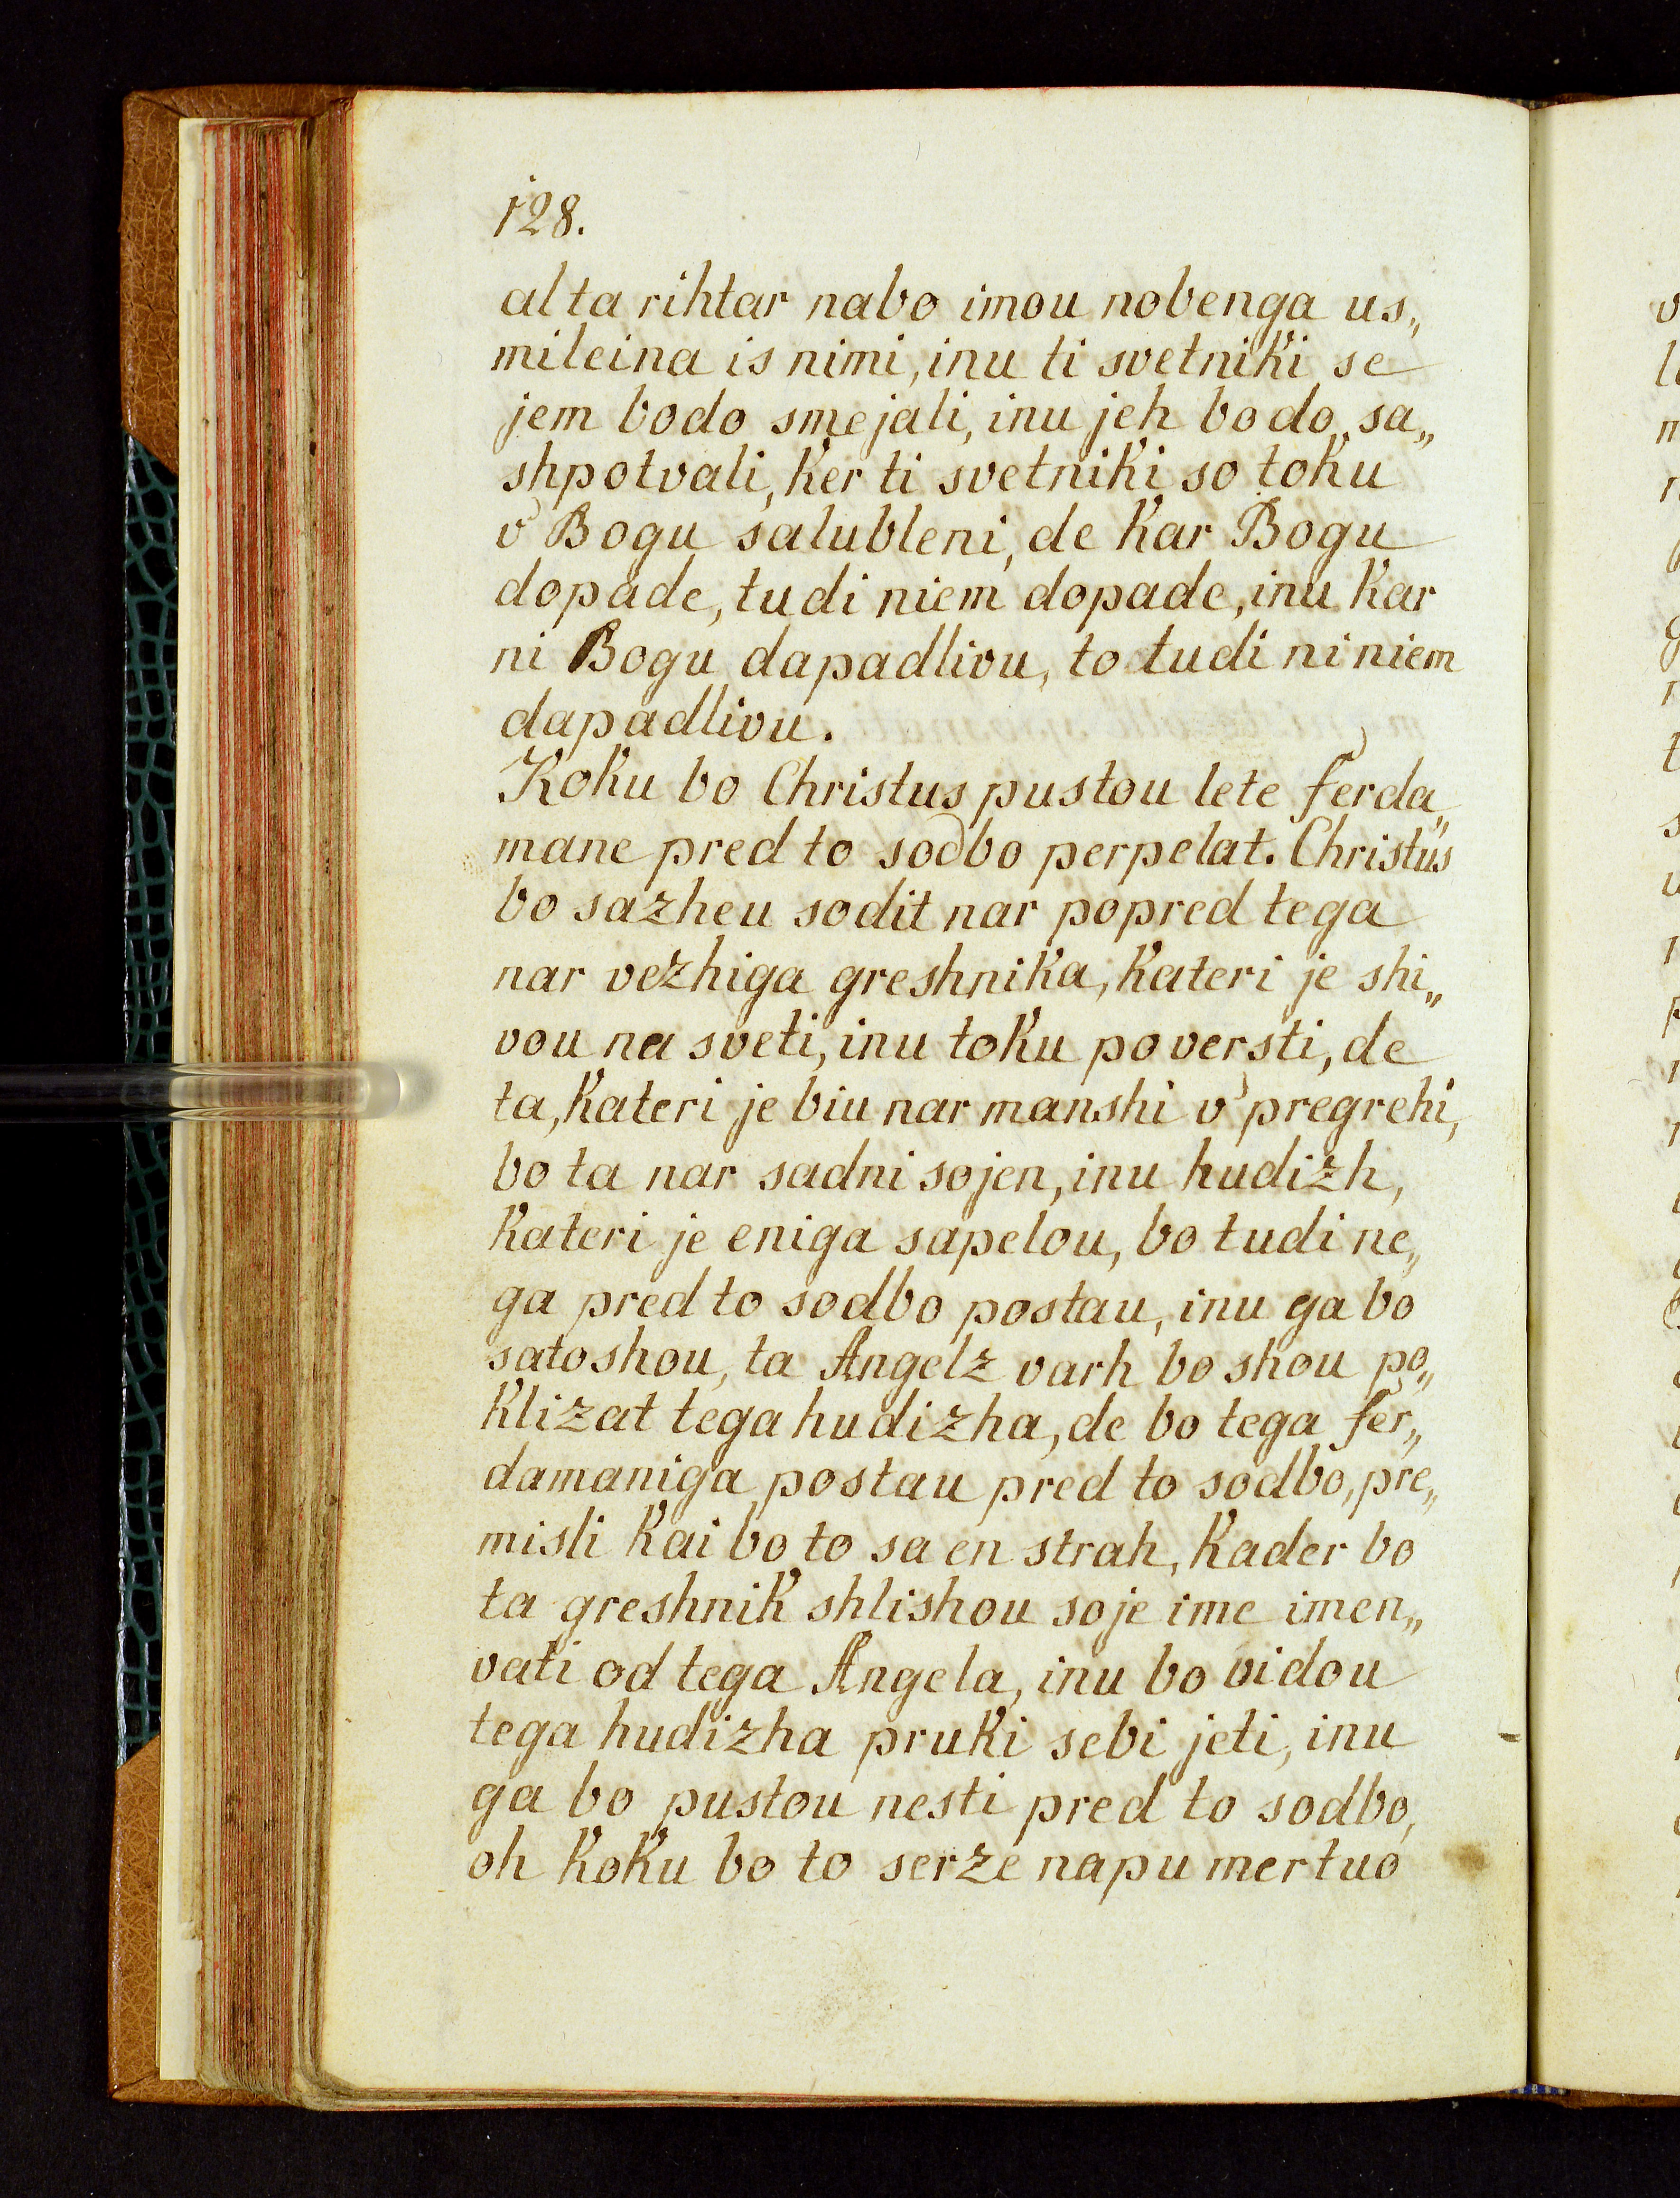 128.
al ta rihtar nabo imou nobenga us„
mileina is nimi, inu ti svetniki se
jem bodo smejali, inu jeh bodo sa„
shpotvali, ker ti svetniki so toku
v' Bogu salubleni, de kar Bogu
dopade, tudi niem dopade, inu kar
ni Bogu dapadlivu, to tudi ni niem
dapadlivu.
Koku bo Christus pustou lete ferda„
mane pred to sodbo perpelat. Christus
bo sazheu sodit nar popred tega
nar vezhiga greshnika, kateri je shi„
vou na sveti, inu toku po versti, de
ta, kateri je biu nar manshi v' pregrehi,
bo ta nar sadni sojen, inu hudizh,
kateri je eniga sapelou, bo tudi ne„
ga pred to sodbo postau, inu ga bo
satoshou, ta Angelz varh bo shou po„
klizat tega hudizha, de bo tega fer„
damaniga postau pred to sodbo, pre„
misli kai bo to sa en strah, kader bo
ta greshnik shlishou soje ime imen„
vati od tega Angela, inu bo vidou
tega hudizha pruki sebi jeti, inu
ga bo pustou nesti pred to sodbo,
oh koku bo to serze napu mertuo